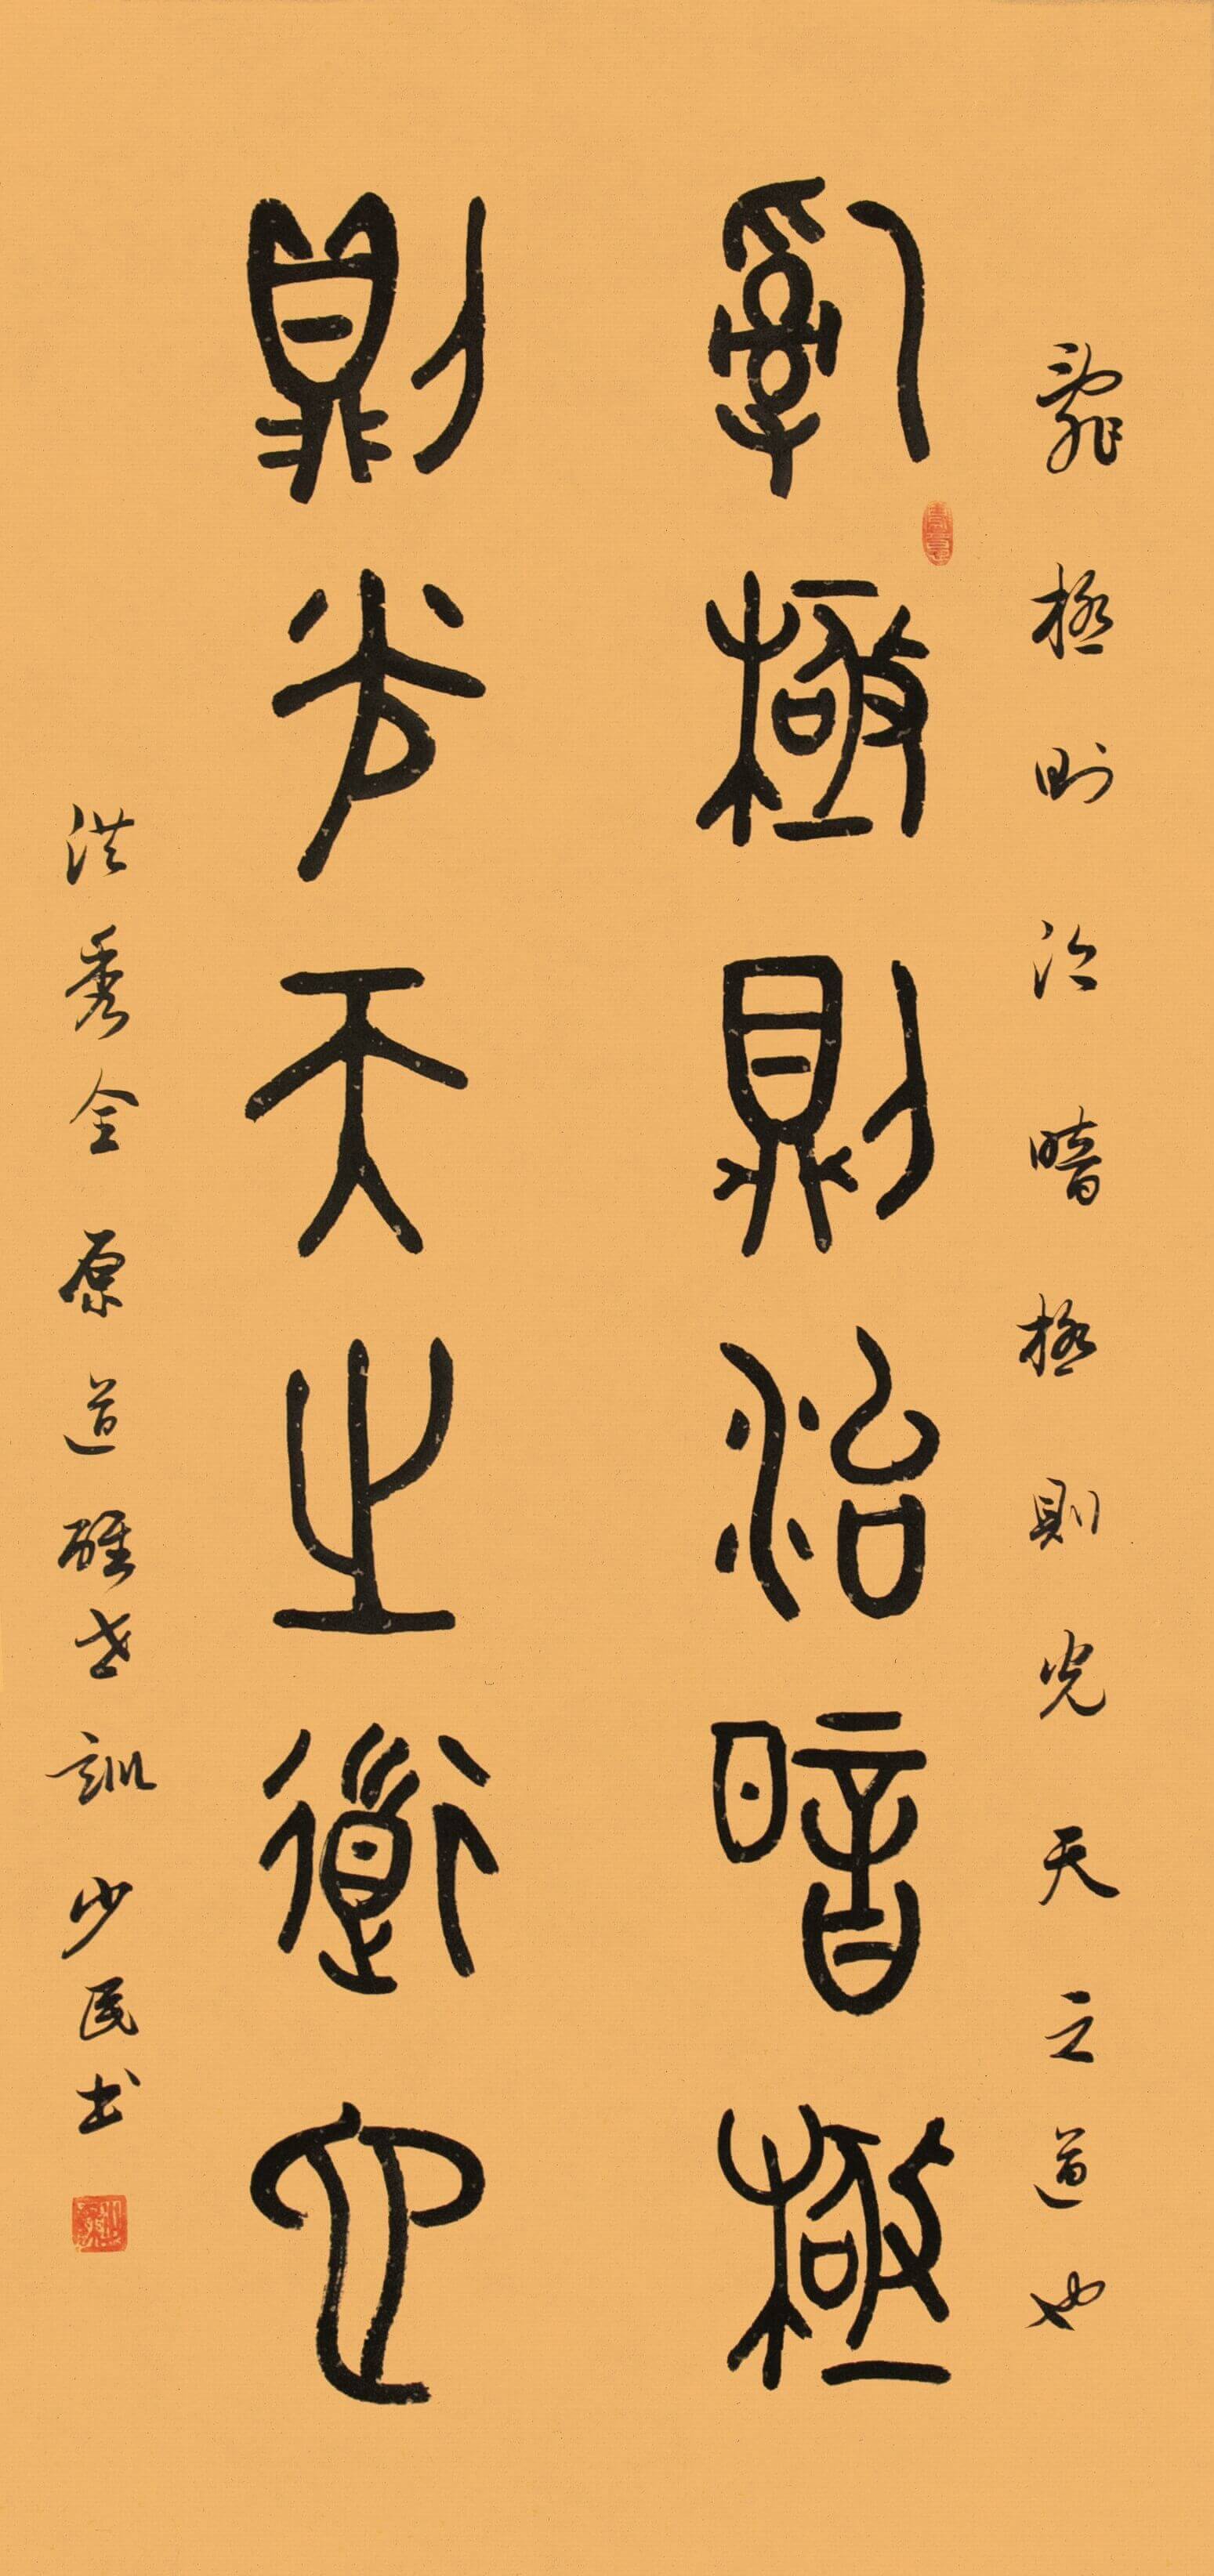 亂極則治暗極則光天之道也
亂極則治暗極
則光天之道也
洪秀全原道醒世訓少民书